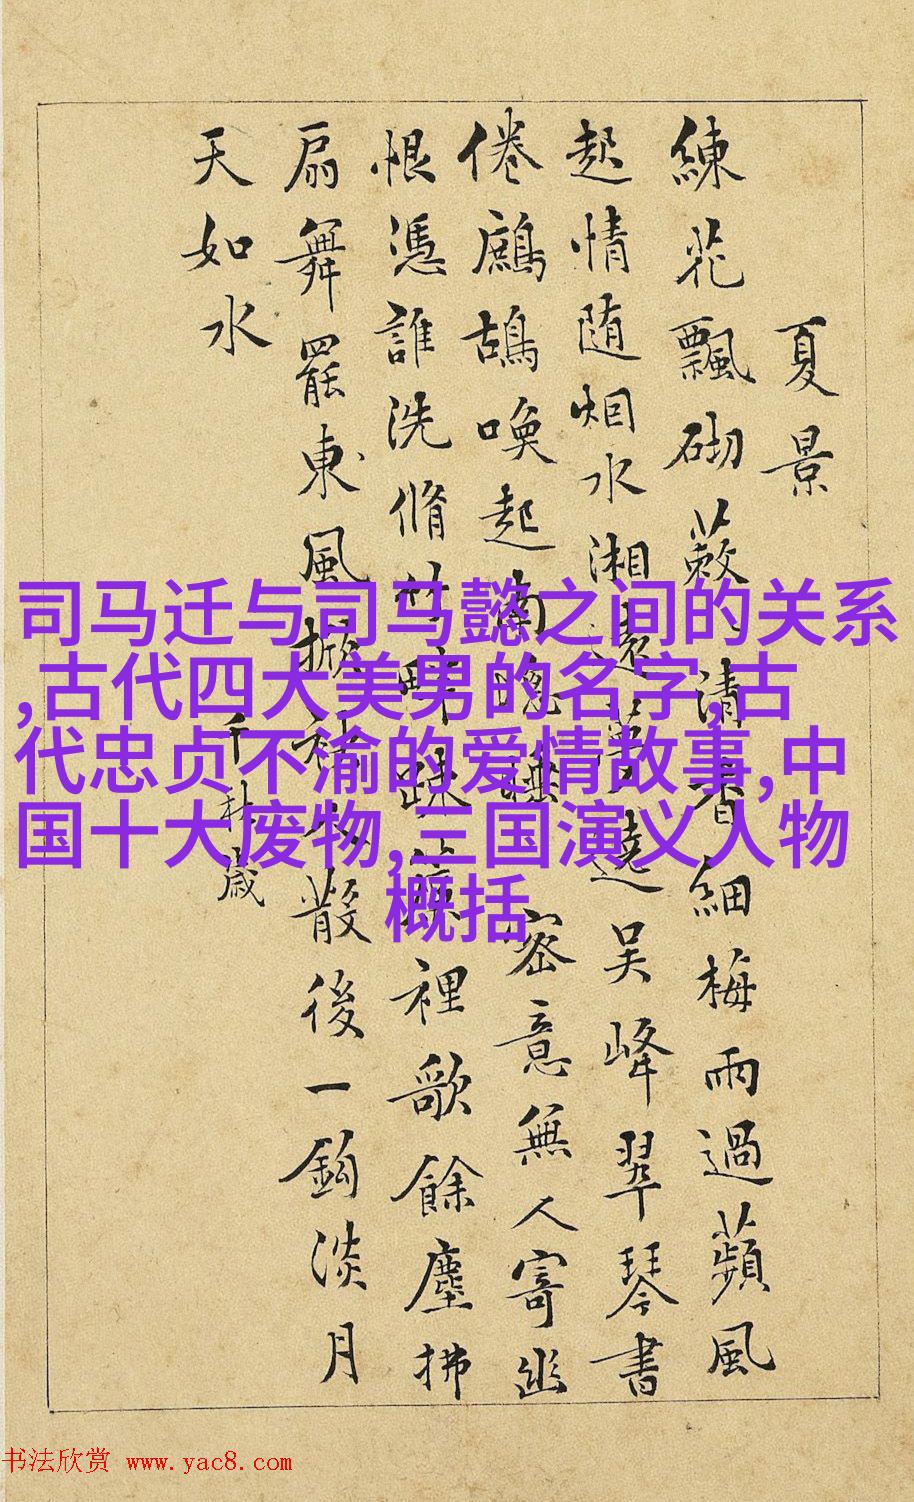 夏景
練花飄砌蔌〻清香細梅雨過蘋風
起情随烟水湘遠夢遶吳峰翠琴書
倦鷓鴣喚起南牕睡密意無人寄幽
恨憑誰洗脩竹畔疎簾裡歌餘塵拂
扇舞罷東風掀袂人散後一鉤淡月
天如水
千秋歲
司马迁与司马懿之间的关系
,古代四大美男的名字,古
代忠贞不渝的爱情故事,中
国十大废物,三国演义人物
概括
书法欣赏 www.yac8.com